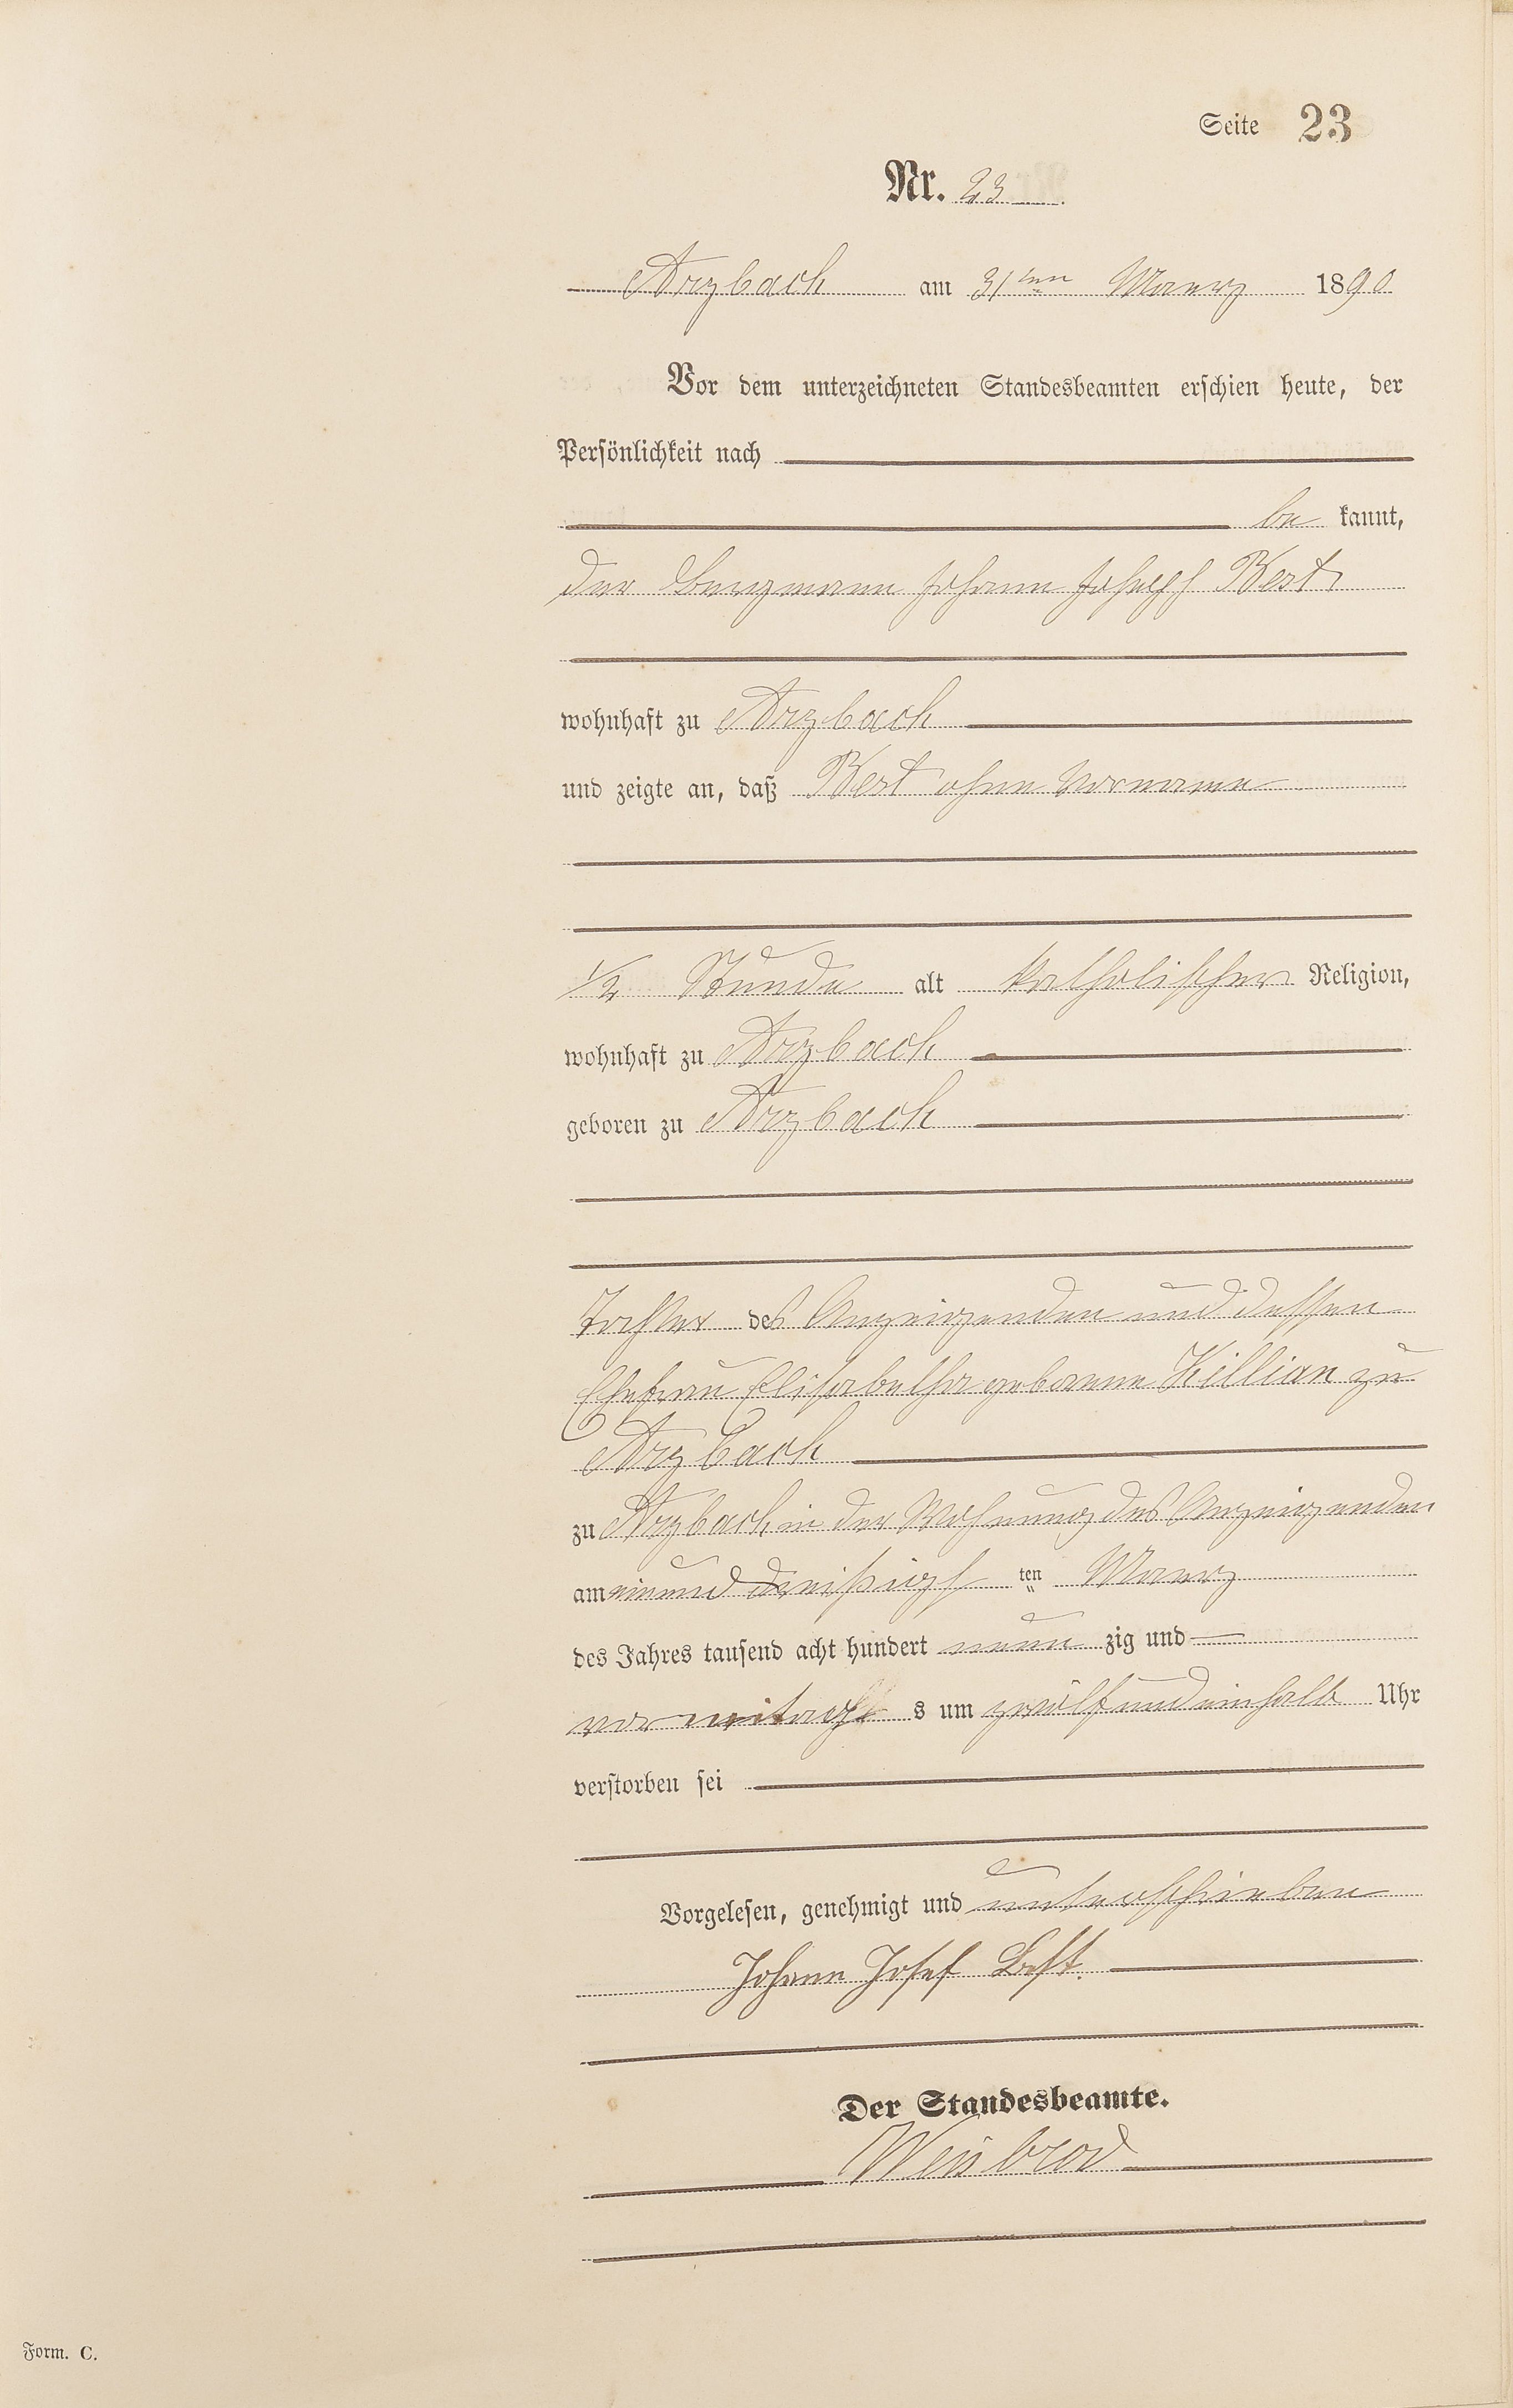 Seite 23
Nr. 23
Arzbach am 31ten Maerz 1890
Vor dem unterzeichneten Standesbeamten erschien heute, der
Persönlichkeit nach
be kannt,
der Bergmann Johann Joseph Best
wohnhaft zu Arzbach
und zeigte an, daß Best ohne Vorname
1/2 Stunde alt katholischer Religion,
wohnhaft zu Arzbach
geboren zu Arzbach
Tochter des Anzeigenden und dessen
Ehefrau Elisabetha geborene Killian zu
Arzbach
zu Arzbach in der Wohnung des Anzeigenden
am einund dreißigs ten Maerz
des Jahres tausend acht hundert neun zig und
vormitag s um zwölf und einhalb Uhr
verstorben sei
Vorgelesen, genehmigt und unterschrieben
Johann Josef Best.
Der Standesbeamte.
Weisbrod
Form. C.